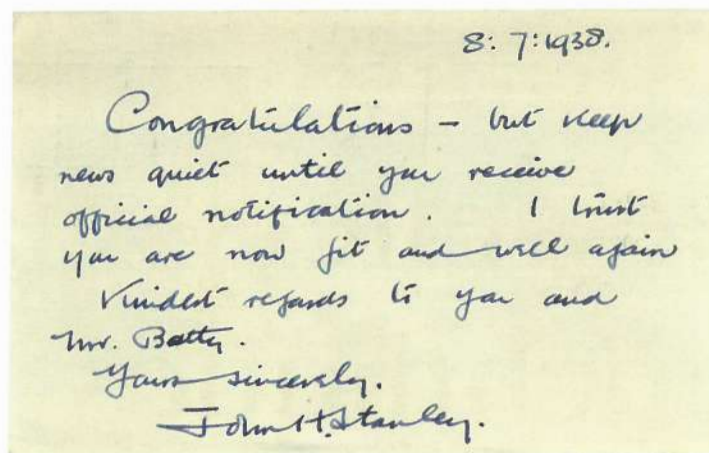 8:7:1938.
Congratulations - but keep
news quiet until you receive
official notification. I trust
you are now fit and well again
Kindest regards to you and
Mr. Batty.
Yours sincerely.
John H. Stanley.